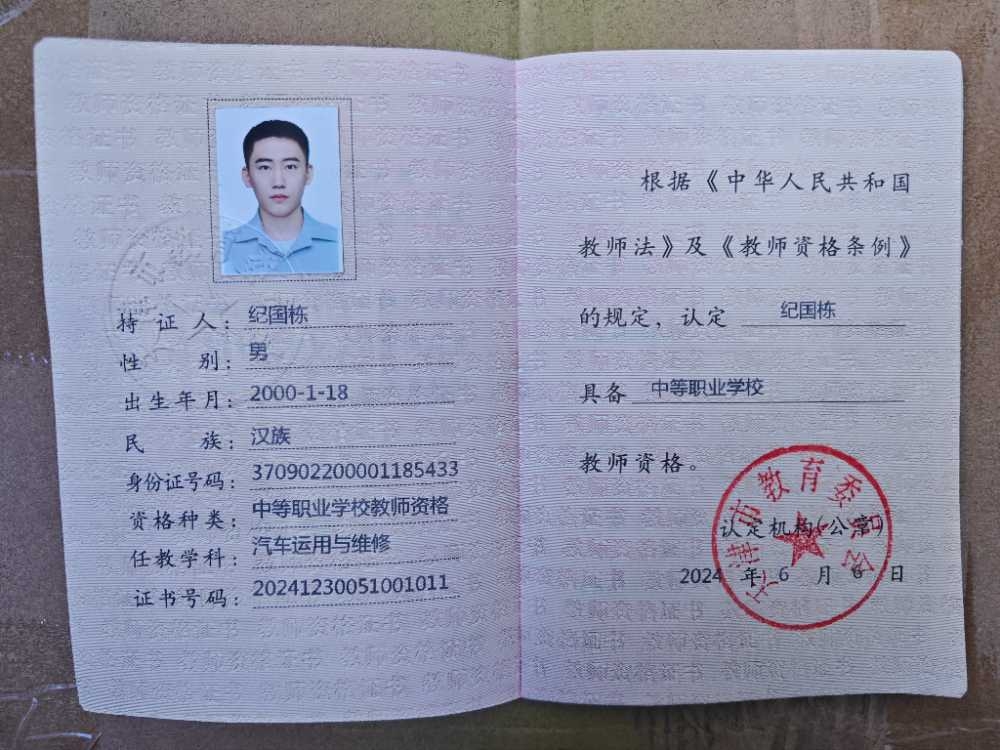 持证人：纪国栋
性别：男
出生年月：2000-1-18
民族：汉族
身份证号码：370902200001185433
资格种类：中等职业学校教师资格
任教学科：汽车运用与维修
证书号码：20241230051001011
根据《中华人民共和国
教师法》及《教师资格条例》
的规定，认定 纪国栋
具备 中等职业学校
教师资格。
天津市教育委员会
认定机构(公章)
2024 年 6 月 6 日